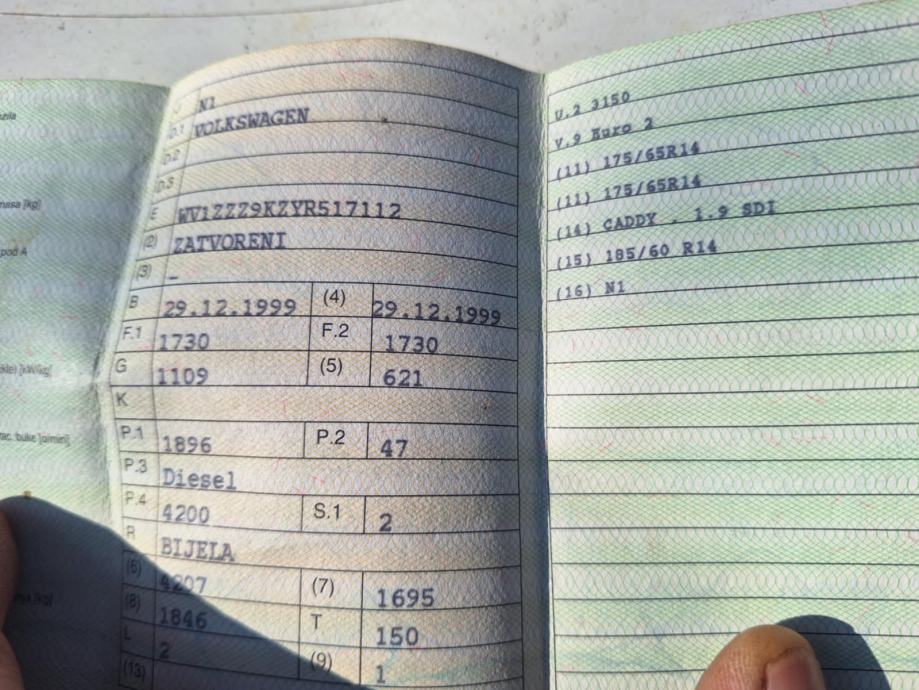 masa [kg]
pod A
N1
D.1 VOLKSWAGEN
D.2
D.3
E WV1ZZZ9KZYR517112
(2) ZATVORENI
(3) -
B 29.12.1999 (4) 29.12.1999
F.1 1730 F.2 1730
G 1109 (5) 621
K
P.1 1896 P.2 47
P.3 Diesel
P.4 4200 S.1 2
R BIJELA
(6) 4207 (7) 1695
(8) 1846 T 150
L 2 (9) 1
(13)
U.2 3150
V.9 Euro 2
(11) 175/65R14
(11) 175/65R14
(14) CADDY . 1.9 SDI
(15) 185/60 R14
(16) N1